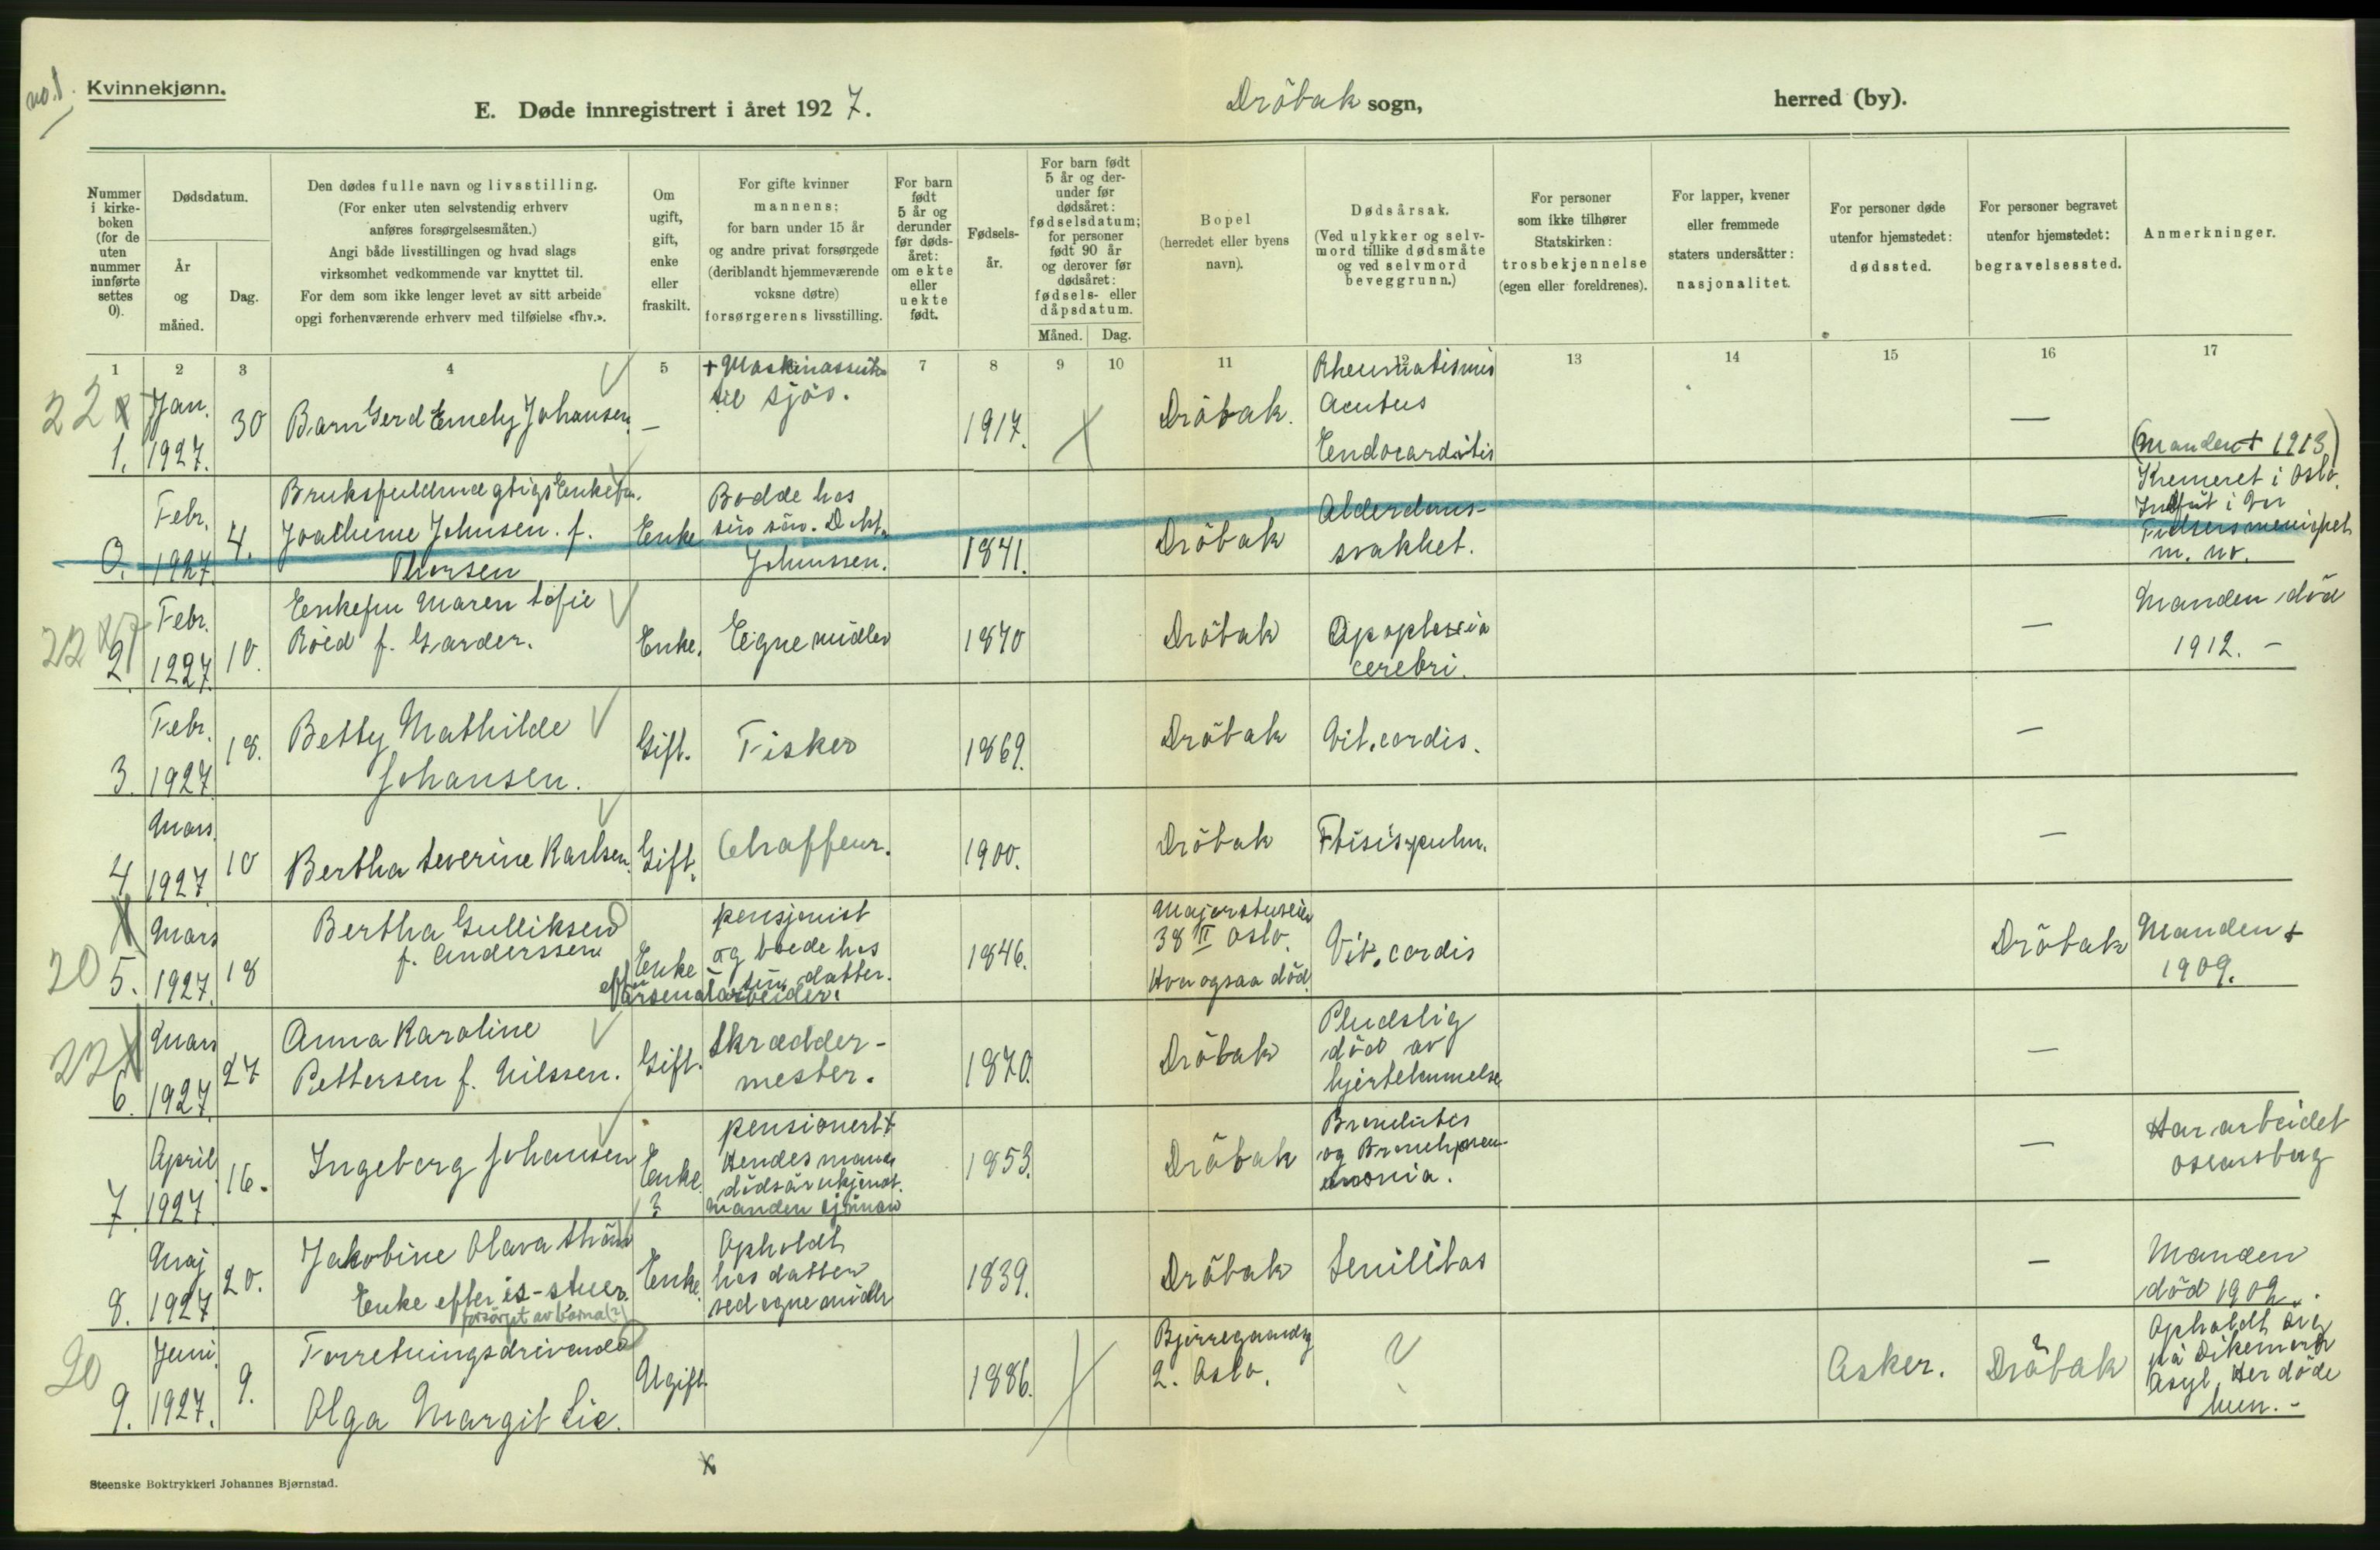 no. 1.
Kvinnekjønn.
E. Døde innregistrert i året 1927.
Dröbak sogn,
herred (by).
Nummer
i kirke-
boken
(for de
uten
nummer
innførte
settes
0).
Dødsdatum.
År
og
måned.
Dag.
Den dødes fulle navn og livsstilling.
(For enker uten selvstendig erhverv
anføres forsørgelsesmåten.)
Angi både livsstillingen og hvad slags
virksomhet vedkommende var knyttet til.
For dem som ikke lenger levet av sitt arbeide
opgi forhenværende erhverv med tilføielse «fhv.».
Om
ugift,
gift,
enke
eller
fraskilt.
For gifte kvinner
mannens;
for barn under 15 år
og andre privat forsørgede
(deriblandt hjemmeværende
voksne døtre)
forsørgerens livsstilling.
For barn
født
5 år og
derunder
før døds-
året:
om ekte
eller
uekte
født.
Fødsels-
år.
For barn født
5 år og der-
under før
dødsåret:
fødselsdatum;
for personer
født 90 år
og derover før
dødsåret:
fødsels- eller
dåpsdatum.
Måned.
Dag.
Bopel
(herredet eller byens
navn).
Dødsårsak.
(Ved ulykker og selv-
mord tillike dødsmåte
og ved selvmord
beveggrunn.)
For personer
som ikke tilhører
Statskirken:
trosbekjennelse
(egen eller foreldrenes).
For lapper, kvener
eller fremmede
staters undersåtter:
nasjonalitet.
For personer døde
utenfor hjemstedet:
dødssted.
For personer begravet
utenfor hjemstedet:
begravelsessted.
Anmerkninger.
1 2 3 4 5 7 8 9 10 11 12 13 14 15 16 17
22
1.
Jan.
1927.
30
Barn Gerd Emely Johansen
—
til sjös.
1917.
Dröbak.
Rheumatismus
Acutus
Endocarditis
—
0.
Febr.
1927.
4.
Joachime Johnsen. f.
Thorsen
Enke
Bodde hos
sin sön.
Johnssen.
1841.
Dröbak
Alderdoms-
svakhet.
—
(Manden + 1913)
Kremeret i Oslo.
m. nr.
22
2.
Febr.
1927.
10.
Enkefru Maren Sofie
Röed f. Garder.
Enke.
Eigne midler
1870
Dröbak
Apoplexia
cerebri.
—
Manden död
1912. –
3.
Febr.
1927.
18.
Betty Mathilde
Johansen.
Gift.
Fisker
1869.
Dröbak
Vit. cordis.
—
4
Mars
1927
10
Bertha Severine Karlsen.
Gift.
Chaffeur.
1900.
Dröbak
Ftisis pulm.
—
20
5.
Mars
1927.
18
Bertha Gulliksen
f. Anderssen
Enke
eft. arsenalarbeider.
pensjonist
og boede hos
sin datter.
1846.
38 II Oslo.
Hvor ogsaa död.
Vit. cordis
Dröbak
Manden +
1909.
22
6.
Mars
1927.
27
Anna Karoline
Pettersen f. Nilssen.
Gift.
Skrædder-
mester.
1870.
Dröbak
Pludslig
död av
hjertelammelse
—
7.
April
1927
16.
Ingeborg Johansen
Enke.
?
pensionert
Hendes mand
dödsår ukjendt.
Manden sjömand
1853.
Dröbak
og Bronchpneu-
monia.
—
Har arbeidet
Oscarsborg
8.
Maj
1927
20.
Jakobine Olava
Enke efter is-stuer.
forsörget av barna (?)
Enke
Opholdt
hos datter
ved egne midler
1839.
Dröbak
Senilitas
—
Manden
död 1902.
20
9.
Juni
1927.
9.
Forretningsdrivende
Olga Margit Lie.
Ugift.
1886.
2. Oslo.
?
Asker.
Dröbak
Opholdt sig
på Dikemark
Asyl. Her döde
hun. –
Steenske Boktrykkeri Johannes Bjørnstad.